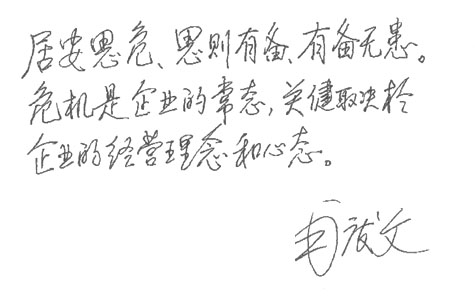 居安思危、思则有备、有备无患。
危机是企业的常态,关键取决于
企业的经营理念和心态。